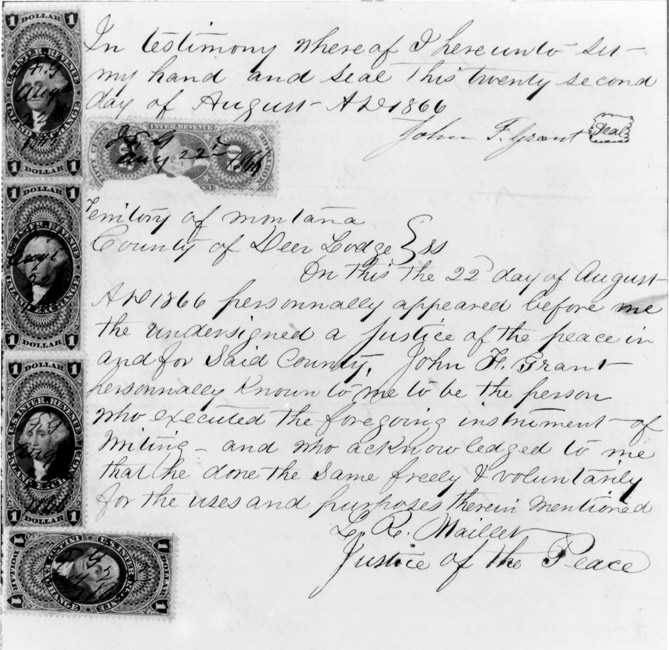 In testimony whereof I hereunto set
my hand and seal this twenty second
day of August A D 1866
John F. Grant Seal
INTER REVENUE
Aug 22d 1866
Territory of montana
County of Deer Lodge } ss
On this the 22d day of August
A D 1866 personnally appeared before me
the undersigned a Justice of the peace in
and for Said County, John F. Grant
personnally Known to me to be the person
who executed the foregoing instrument of
Writing - and who acknowledged to me
that he done the same freely & voluntarily
for the uses and purposes therein mentioned
L. R. Maillet
Justice of the Peace
1 DOLLAR 1
U.S. INTER. REVENUE
1 DOLLAR 1
1 DOLLAR 1
U.S. INTER. REVENUE
1 DOLLAR 1
1 DOLLAR 1
U.S. INTER. REVENUE
1 DOLLAR 1
1 DOLLAR 1
1 DOLLAR 1